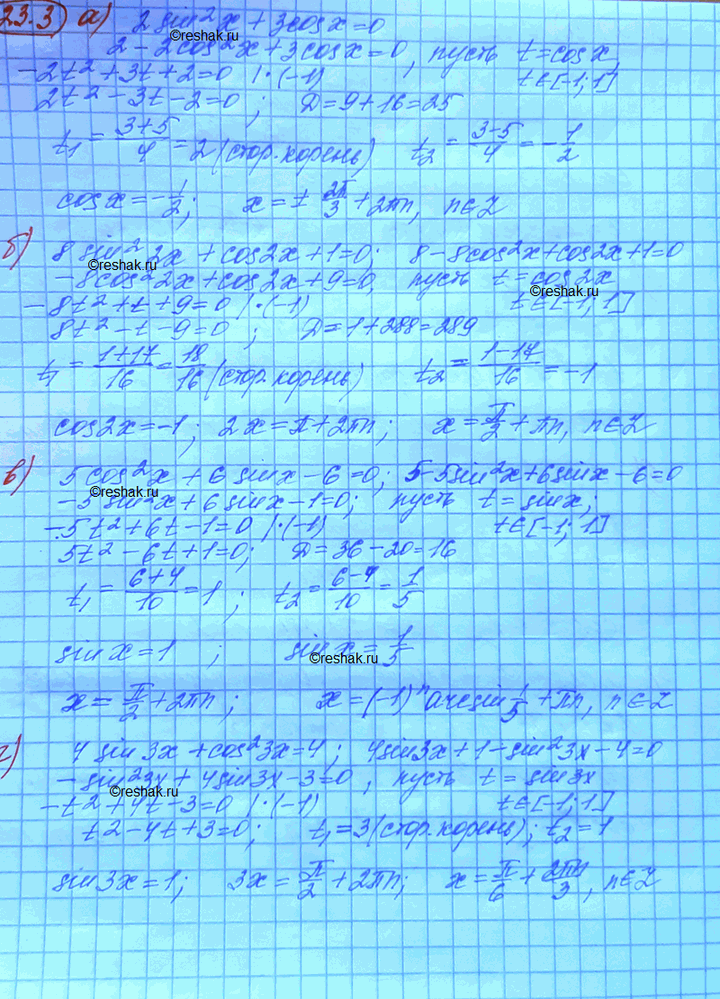 23.3) а) 2 sin²x + 3cosx = 0
2 - 2cos²x + 3cosx = 0, пусть t = cosx,
-2t² + 3t + 2 = 0 |·(-1) t∈[-1; 1]
2t² - 3t - 2 = 0; D = 9 + 16 = 25
t₁ = (3+5)/4 = 2 (стор. корень) t₂ = (3-5)/4 = -1/2
cosx = -1/2; x = ± 2π/3 + 2πn, n∈Z
б) 8 sin²2x + cos2x + 1 = 0; 8 - 8cos²x + cos2x + 1 = 0
-8cos²2x + cos2x + 9 = 0, пусть t = cos2x
-8t² + t + 9 = 0 |·(-1) t∈[-1; 1]
8t² - t - 9 = 0; D = 1 + 288 = 289
t₁ = (1+17)/16 = 18/16 (стор. корень) t₂ = (1-17)/16 = -1
cos2x = -1; 2x = π + 2πn; x = π/2 + πn, n∈Z
в) 5cos²x + 6sinx - 6 = 0; 5 - 5sin²x + 6sinx - 6 = 0
-5sin²x + 6sinx - 1 = 0; пусть t = sinx;
-5t² + 6t - 1 = 0 |·(-1) t∈[-1; 1]
5t² - 6t + 1 = 0; D = 36 - 20 = 16
t₁ = (6+4)/10 = 1; t₂ = (6-4)/10 = 1/5
sinx = 1; sinx = 1/5
x = π/2 + 2πn; x = (-1)ⁿ arcsin 1/5 + πn, n∈Z
г) 4 sin3x + cos²3x = 4; 4sin3x + 1 - sin²3x - 4 = 0
-sin²3x + 4sin3x - 3 = 0, пусть t = sin3x
-t² + 4t - 3 = 0 |·(-1) t∈[-1; 1]
t² - 4t + 3 = 0; t₁ = 3 (стор. корень); t₂ = 1
sin3x = 1; 3x = π/2 + 2πn; x = π/6 + 2πn/3, n∈Z
©reshak.ru
©reshak.ru
©reshak.ru
©reshak.ru
©reshak.ru
©reshak.ru